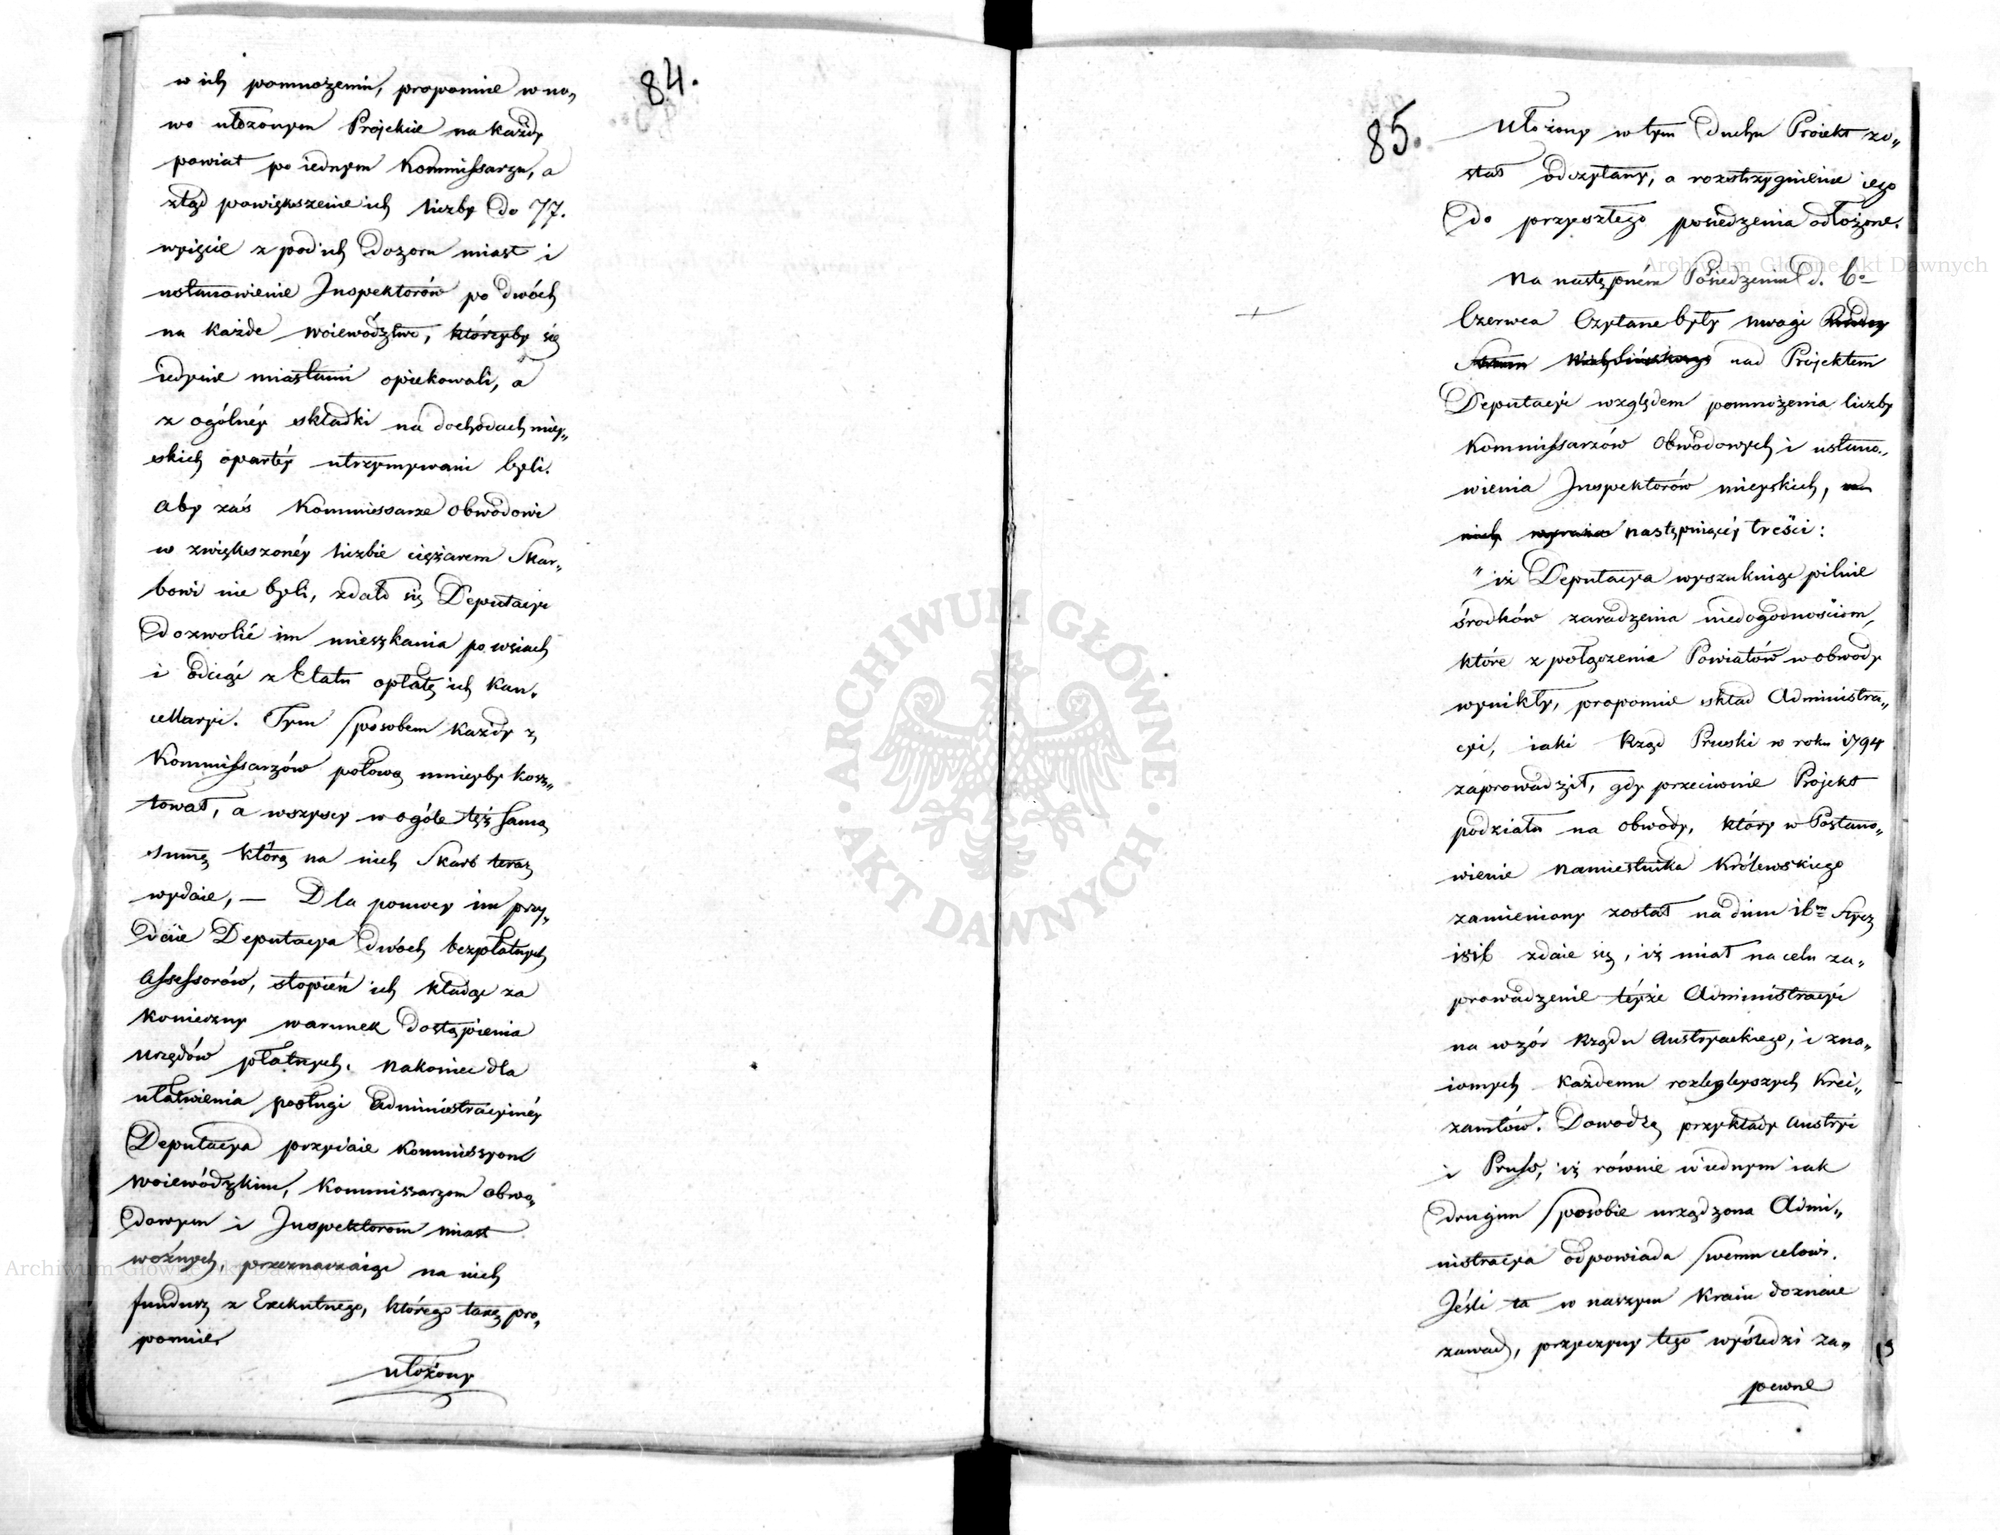 84.
w ich pomnożeniu, proponuie w no„
wo ułożonym Projekcie na każdy
powiat po iednym Kommissarzu, a
ztąd powiększenie ich liczby do 77.
wyięcie z pod ich dozoru miast i
ustanowienie Inspektorów po dwóch
na każde Woiewództwo, którzyby się
iedynie miastami opiekowali, a
z ogólnéy składki na dochodach miey„
skich opartéy utrzymywani byli.
Aby zaś Kommissarze Obwodowi
w zwiększonéy liczbie ciężarem Skar„
bowi nie byli, zdało się Deputacyi
dozwolić im mieszkania po wsiach
i odciąć z Etatu opłatę ich Kan„
cellaryi. Tym sposobem każdy z
Kommissarzów połową mnieyby kosz„
tował, a wszyscy w ogóle tęż samą
summę którą na nich Skarb teraz
wydaie, — Dla pomocy im przy„
daie Deputacya dwóch bezpłatnych
Assessorów, stopień ich kładąc za
konieczny warunek dostąpienia
urzędów płatnych. Nakoniec dla
ułatwienia posługi Administracyinéy
Deputacya przydaie Kommissyom
Woiewódzkim, Kommissarzom Obwo„
dowym i Inspektorom miast
woźnych, przeznaczaiąc na nich
fundusz z Exekutnego, którego taxę pro„
ponuie.
ułożony
85.
Ułożony w tym duchu Proiekt zo„
stał odczytany, a rozstrzygnienie iego
do przyszłego posiedzenia odłożone.
Na następném Posiedzeniu d. 6º
Czerwca Czytane były uwagi Radcy
Stanu nad Projektem
Deputacyi względem pomnożenia liczby
Kommissarzów Obwodowych i ustano„
wienia Inspektorów mieyskich, w
nich wyraża następuiącéy treści:
"iż Deputacya wyszukuiąc pilnie
środków zaradzenia niedogodnościom,
które z połączenia Powiatów w obwody
wynikły, proponuie skład Administra„
cyi, iaki Rząd Pruski w roku 1794
zaprowadził, gdy przeciwnie Projekt
podziału na obwody, który w Postano„
wienie Namiestnika Królewskiego
zamieniony został na dniu 16m Stycz
1816 zdaie się, iż miał na celu za„
prowadzenie téyże Administracyi
na wzór Rządu Austryackiego, i zna„
iomych każdemu rozległeyszych Krei„
zamtów. Dowodzą przykłady Austryi
i Pruss, iż równie w iednym iak
drugim sposobie urządzona Admi„
nistracya odpowiada swemu celowi.
Jeśli ta w naszym Kraiu doznaie
zawad, przyczyny tego wyśledzi za„
pewne
ARCHIWUM GŁÓWNE
AKT DAWNYCH
Archiwum Główne Akt Dawnych
Archiwum Główne Akt Dawnych